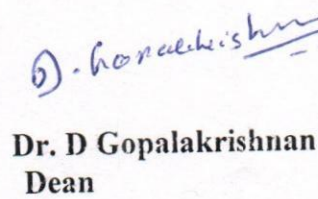 D. Gopalakrishn
Dr. D Gopalakrishnan
Dean